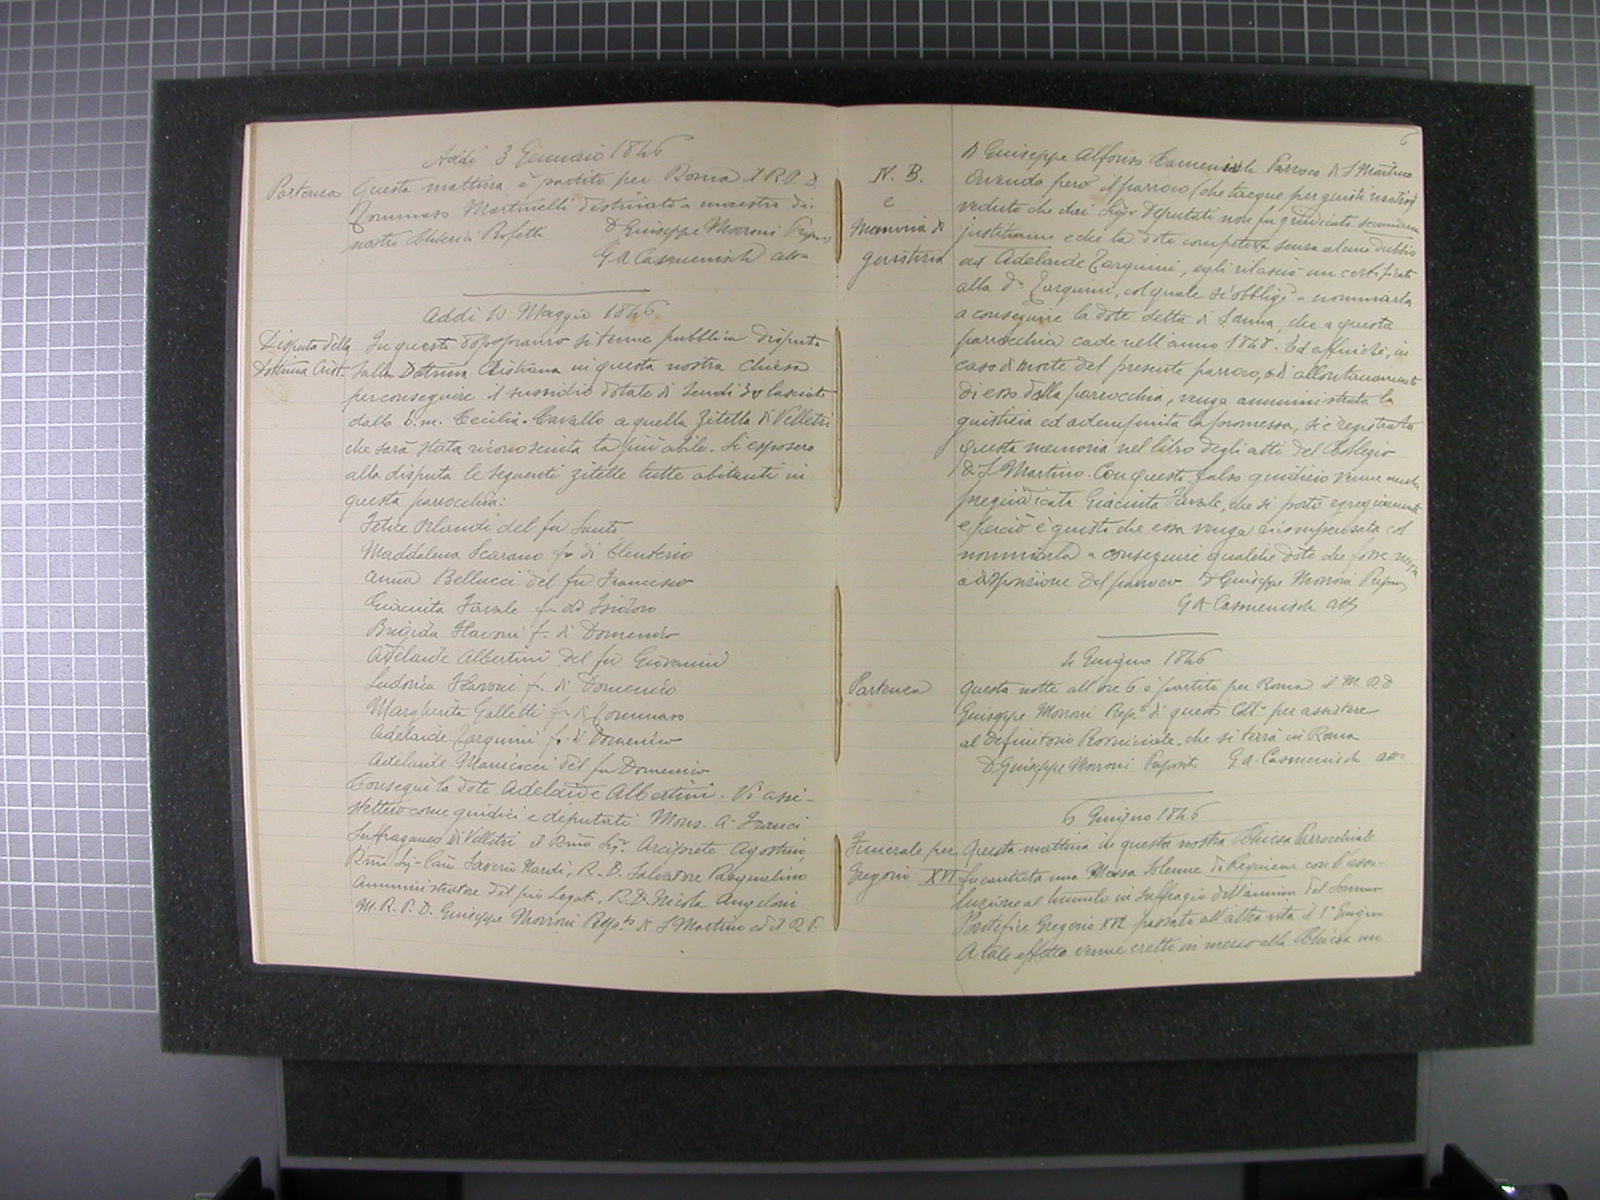 Addì 3 Gennaio 1846
Partenza
Questa mattina è partito per Roma il R.P. D.
Tommaso Martinelli destinato a maestro di
nostri Chierici Professi D Giuseppe Morroni Prep.
G A Casmenisch att.
Addì 10 Maggio 1846
Disputa della
Dottrina Crist.
In questo dopopranzo si tenne pubblica disputa
sulla Dottrina Cristiana in questa nostra Chiesa
per conseguire il sussidio dotale di Scudi 30 lasciato
dalla b.m. Cecilia Cavallo a quella Zitella di Velletri
che sarà stata riconosciuta la più abile. Si esposero
alla disputa le seguenti zitelle tutte abitanti in
questa parrocchia:
Felice Orlandi del fu Santo
Maddalena Scarano f. di Eleuterio
Anna Bellucci del fu Francesco
Giacinta Favale f. di Isidoro
Brigida Flavoni f. di Domenico
Adelaide Albertini del fu Giovanni
Ludovica Flavoni f. di Domenico
Margherita Galletti f. di Tommaso
Adelaide Tarquini f. di Domenico
Adelaide Mansiocci del fu Domenico
Conseguì la dote Adelaide Albertini. Vi assi-
stettero come giudici e deputati Mons. A. Franci
Suffraganeo di Velletri il Rmo Sigr Arciprete Agostino,
Rmo Sig. Can Saverio Nardi, R. D. Salvatore
Amministratore del pio Legato, R. D. Nicola Angeloni
M. R. P. D. Giuseppe Morroni Prepto di S Martino ed il R P.
6
N. B.
e
Memoria di
giustizia
D Giuseppe Alfonso Casmenisch Parroco di S Martino
Avendo però il parroco (che tacque per giusti
veduto che dai Sigr Deputati non fu giudicato secundum
justitiam e che la dote competeva senza alcun dubbio
ad Adelaide Tarquini, egli rilasciò un certificato
alla da Tarquini, col quale si obbligò a nominarla
a conseguire la dote detta di S. Anna, che a questa
parrocchia cade nell'anno 1848. Ed affinchè, in
caso di morte del presente parroco, o di allontanamento
di esso dalla parrocchia, venga amministrata la
giustizia ed adempiuta la promessa, si è registrata
questa memoria nel libro degli atti del Collegio
di S Martino. Con questo falso giudizio venne anche
pregiudicata Giacinta Favale, che si portò egregiamente
e perciò è giusto che essa venga ricompensata col
nominarla a conseguire qualche dote che fosse
a disposizione del parroco D Giuseppe Morroni Prep.
G A Casmenisch att.
4 Giugno 1846
Partenza
Questa notte all'ore 6 è partito per Roma il M. R. D
Giuseppe Morroni Prepo di questo Coll° per assistere
al Definitorio Provinciale, che si terrà in Roma
D. Giuseppe Morroni Preposto G. A. Casmenisch att.
6 Giugno 1846
Funerale per
Gregorio XVI
Questa mattina in questa nostra Chiesa Parrocchiale
fu cantata una Messa solenne di Requiem con l'asso-
luzione al tumulo in suffragio dell'anima del Sommo
Pontefice Gregorio XVI passato all'altra vita il 1° Giugno
A tale effetto venne eretto in mezzo alla Chiesa un